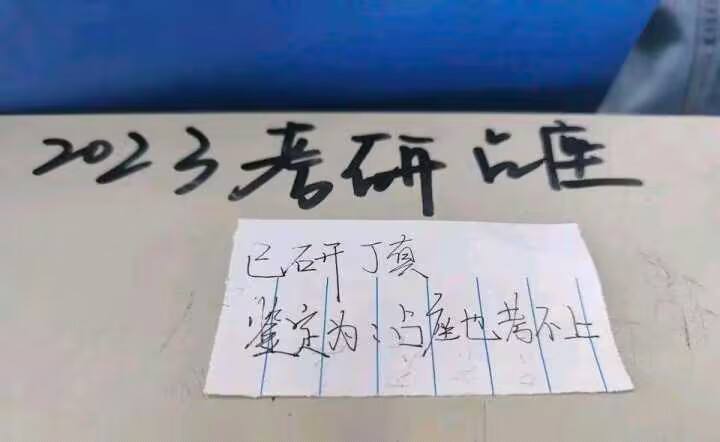 2023考研占座
已研丁真
鉴定为：占座也考不上